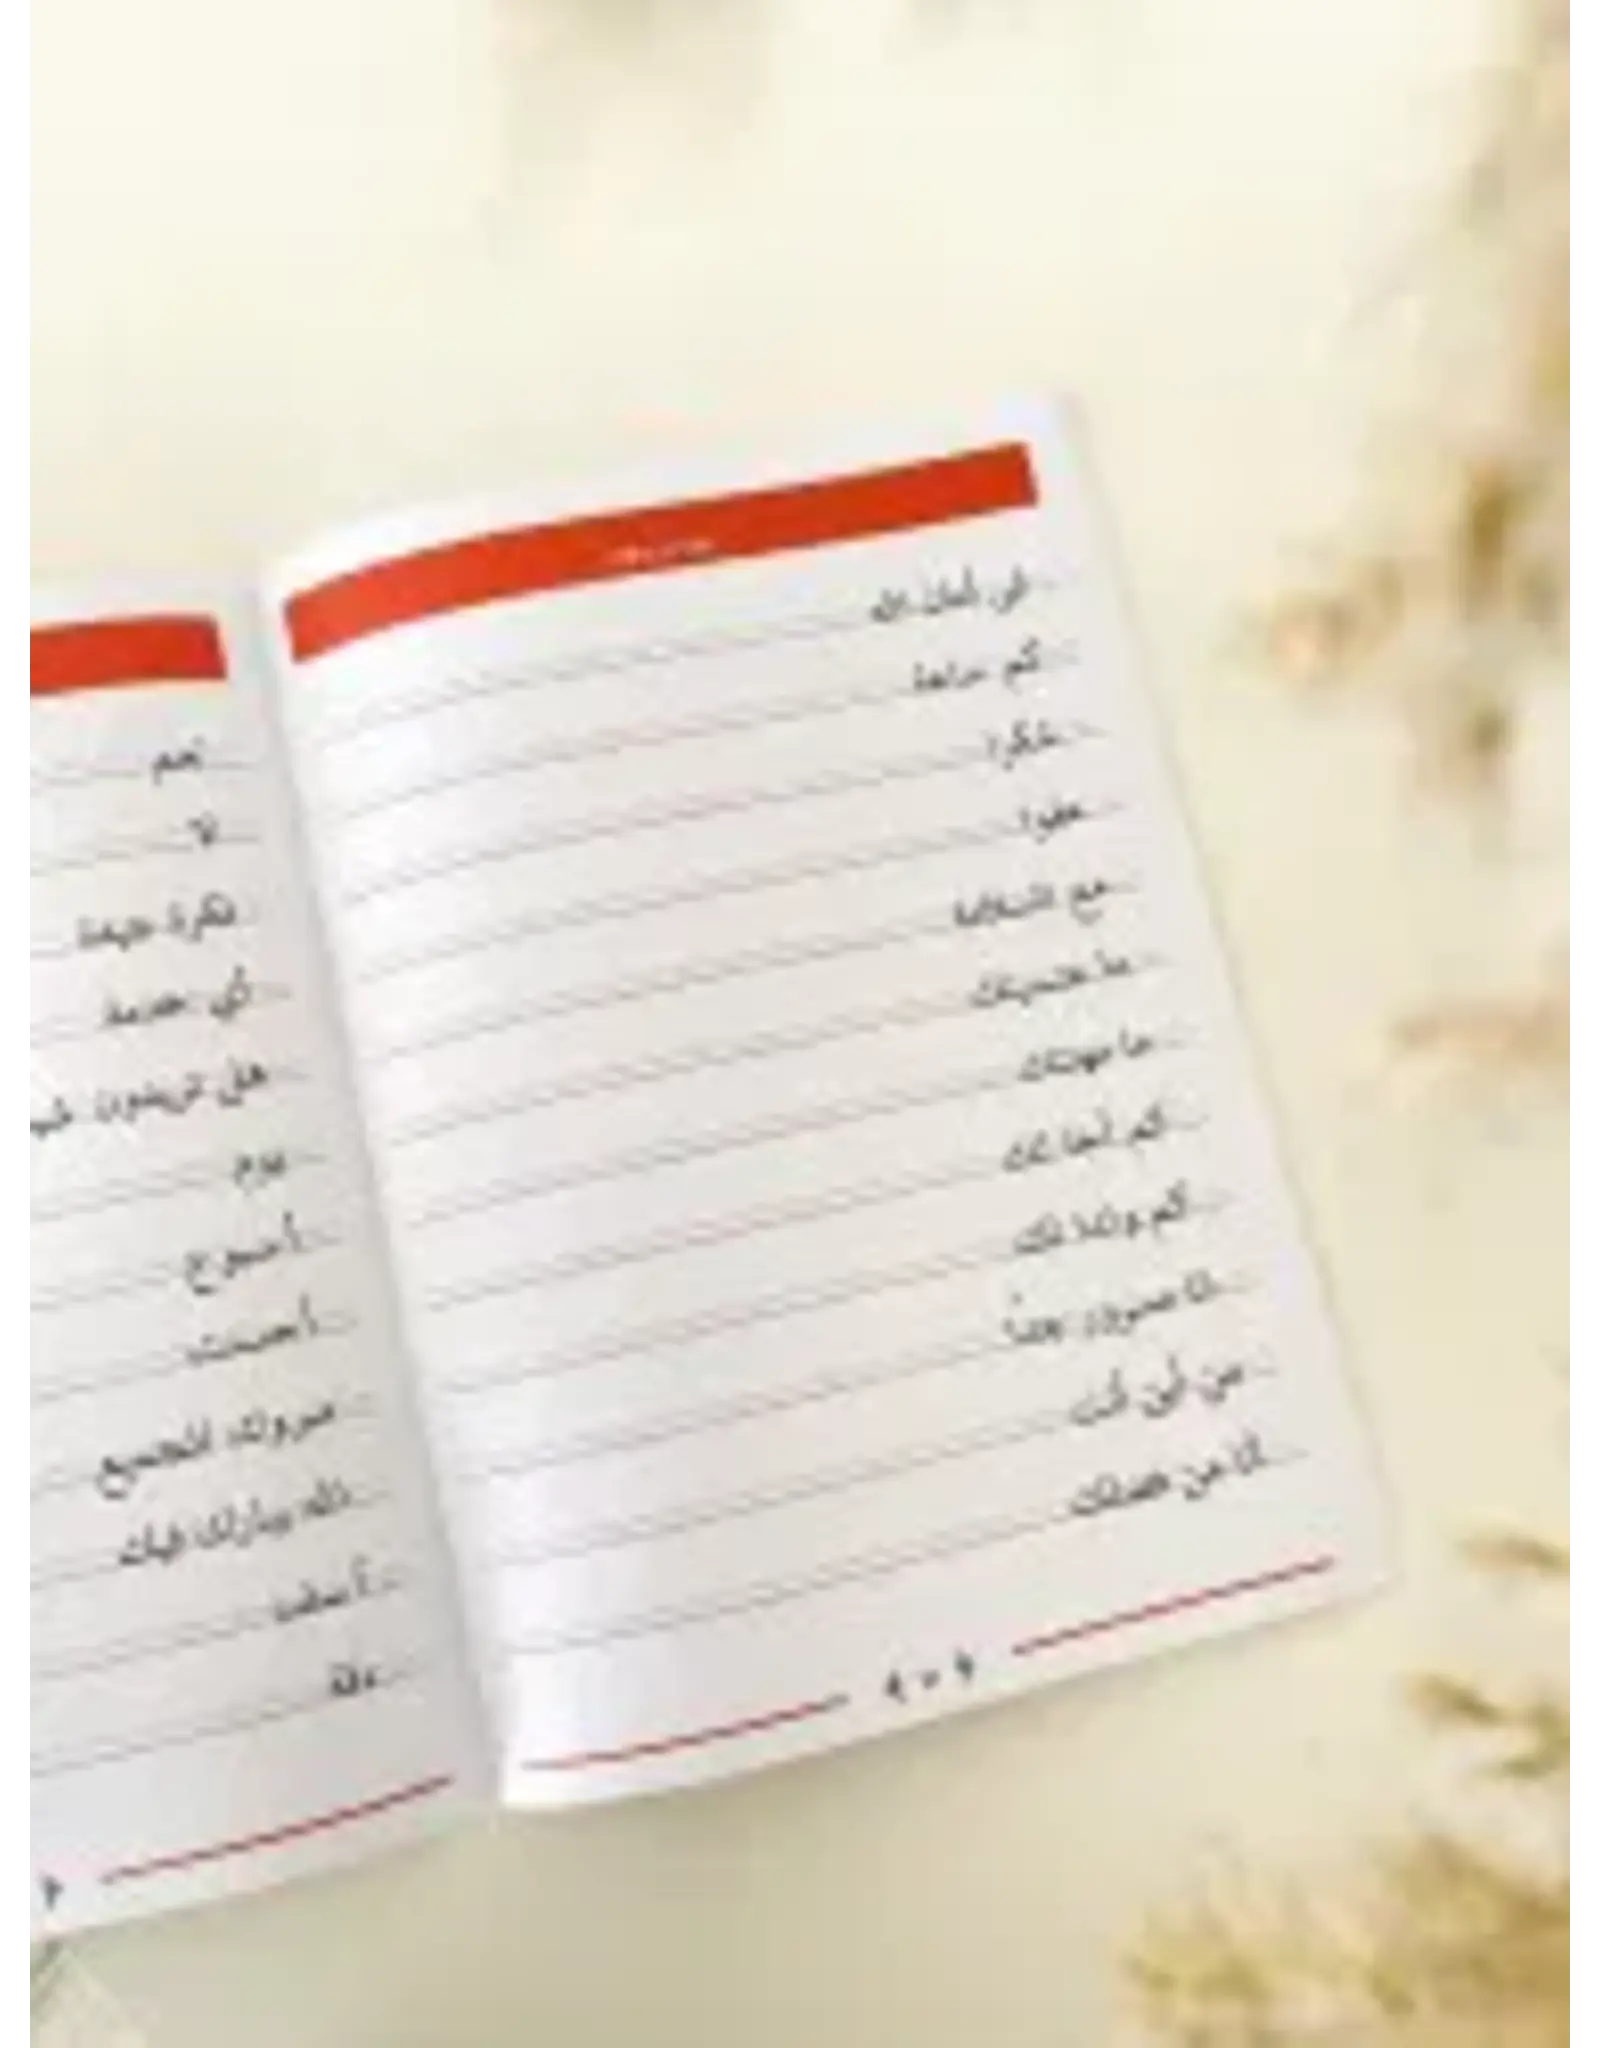 في أمان الله
كم ساعة
شكرا
عفوا
مع السلامة
ما جنسيتك
ما مهنتك
كم أخا لك
كم ولدا لك
أنا مسرور جدًا
من أين أنت
أنا من فضلك
نعم
لا
فكرة جيدة
أي خدمة
هل تريدون
يوم
أسبوع
أحسنت
مبروك للجميع
الله يبارك فيك
أسف